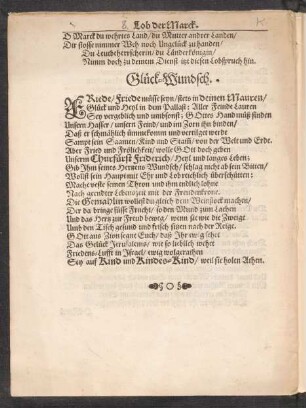 8. Lob der Marck.
O Marck du wehrtes Land/ du Mutter andrer Landen/
Dir stosse nimmer Weh noch Ungelück zu handen/
Du Leutbeherrscherin/ du Länderkönigen/
Nimm doch zu deinem Dienst itzt diesen Lobspruch hin.
Glück-Wundsch.
FRiede/ Friede müsse seyn/ stets in deinen Mauren/
Glück und Heyl in dem Pallast: Aller Feinde Lauren
Sey vergeblich und umbsonst: GOttes Hand müß finden
Unsern Hasser/ unsern Feind/ und im Zorn ihn binden/
Daß er schmählich ümmekomm und vertilget werde
Sampt sein Saamen/ Kind und Stam/ von der Welt und Erde.
Aber Fried und Fröligkeit/ wolle GOtt doch geben
Unserm Churfürst Friderich/ Heyl und langes Leben;
Gib Ihm seines Hertzens Wundsch/ schlag nicht ab sein Bitten/
Wollst sein Haupt mit Ehr und Lob reichlich überschütten:
Mache veste seinen Thron und ihm endlich lohne
Nach geendter Lebenszeit mit der Freudenkrone.
Die Gemahlin wollest du gleich dem Weinstock machen/
Der da bringe süsse Frücht/ so den Mund zum Lachen
Und das Hertz zur Freud beweg/ wenn sie wie die Zweige
Umb den Tisch gesund und frisch sitzen nach der Reige.
GOtt aus Zion segne Euch/ daß Ihr ewig sehet
Das Gelück Jerusalems/ wie so lieblich wehet
Friedens-Lufft in Israel/ ewig wolgerathen
Sey auf Kind und Kindes-Kind/ weil sie holen Athen.